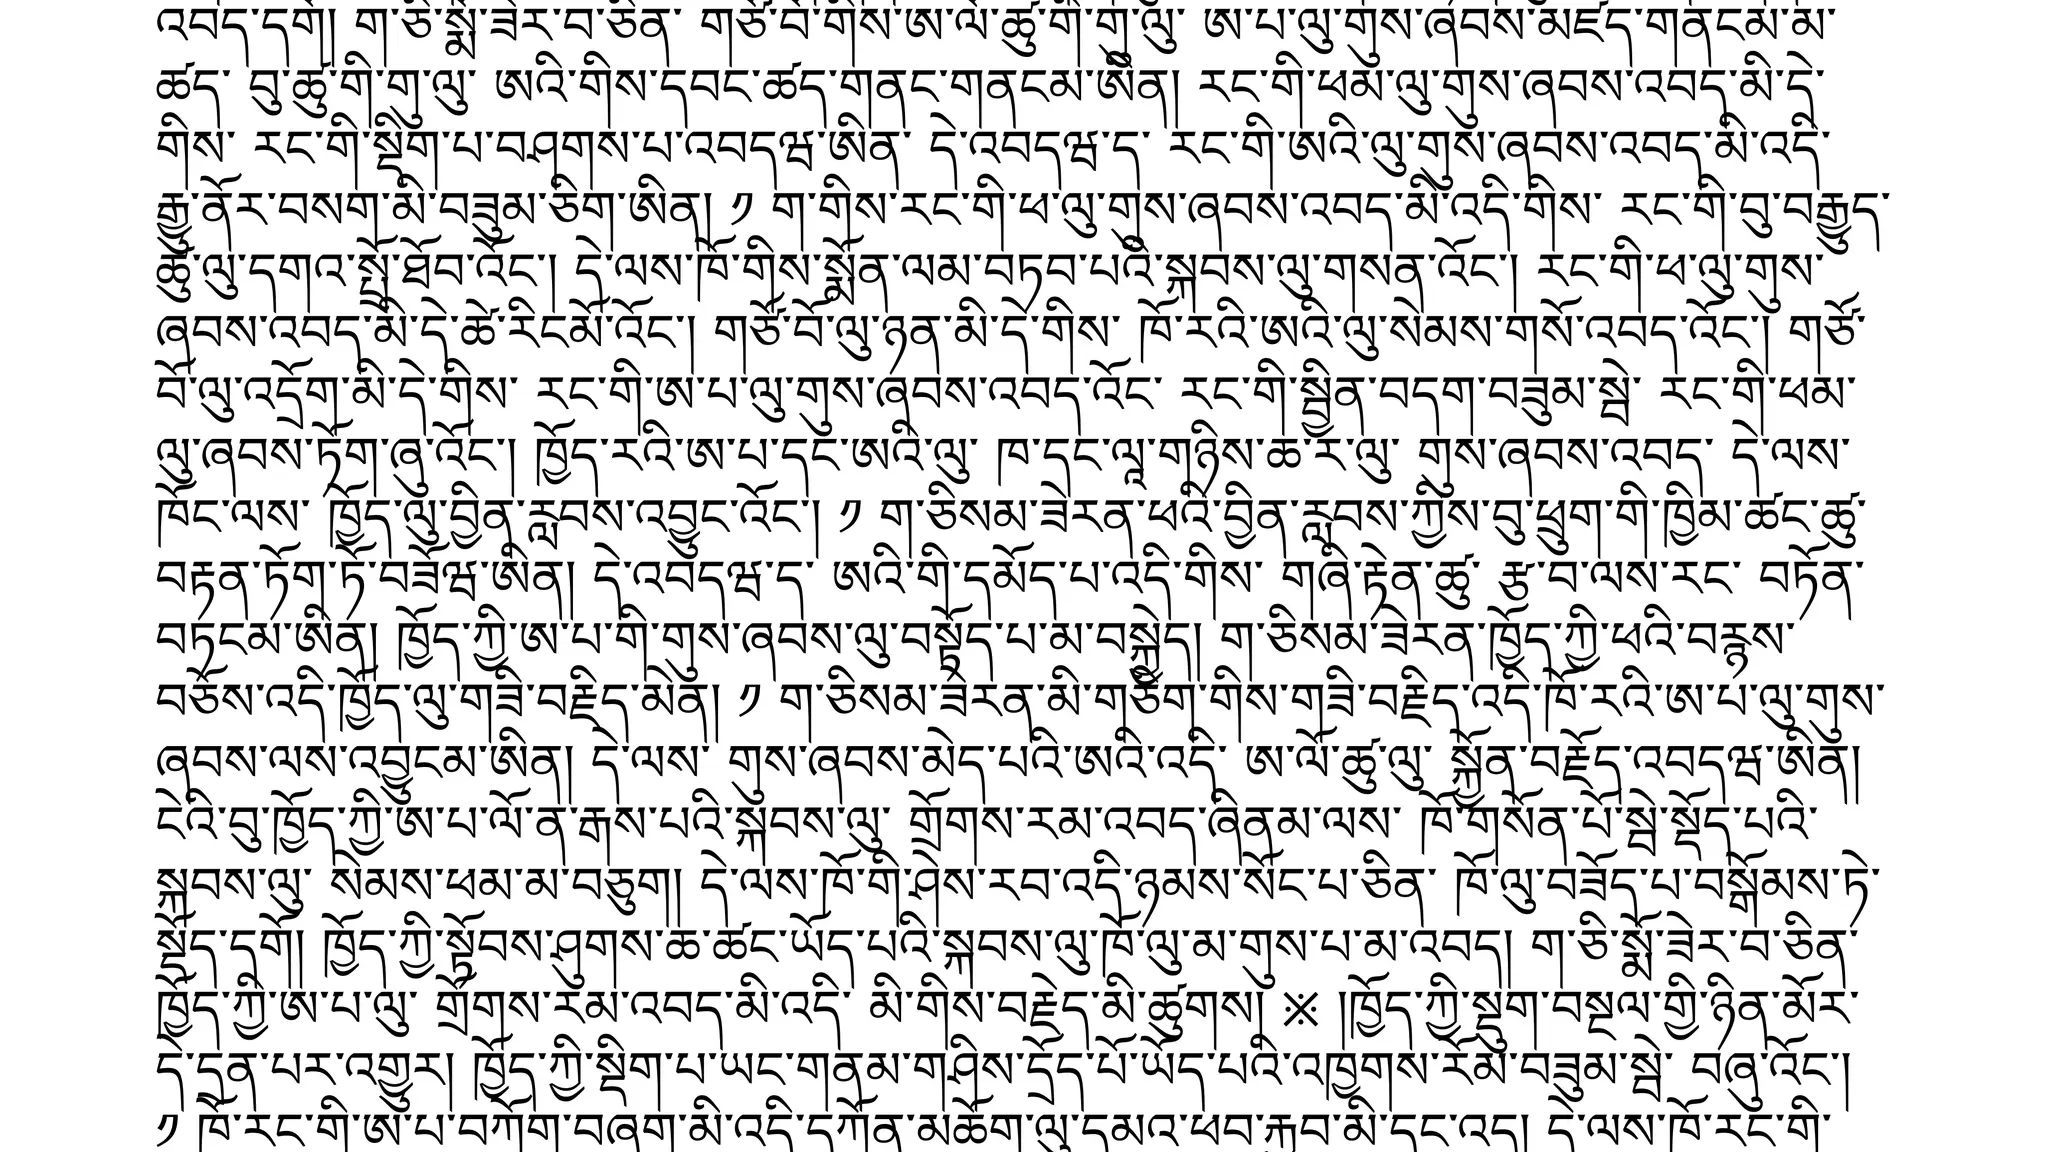 འབད་དགོ། ག་ཅི་སྨོ་ཟེར་བ་ཅིན་ གཙོ་བོ་གིས་ཨ་ལོ་ཚུ་གི་གུ་ལུ་ ཨ་པ་ལུ་གུས་ཞབས་མཛད་གནངམ་མ་
ཚད་ བུ་ཚུ་གི་གུ་ལུ་ ཨའི་གིས་དབང་ཚད་གནང་གནངམ་ཨིན། རང་གི་ཕམ་ལུ་གུས་ཞབས་འབད་མི་དེ་
གིས་ རང་གི་སྡིག་པ་བཤགས་པ་འབདཝ་ཨིན་ དེ་འབདཝ་ད་ རང་གི་ཨའི་ལུ་གུས་ཞབས་འབད་མི་འདི་
རྒྱུ་ནོར་བསག་མི་བཟུམ་ཅིག་ཨིན། ༡ ག་གིས་རང་གི་ཕ་ལུ་གུས་ཞབས་འབད་མི་འདི་གིས་ རང་གི་བུ་བརྒྱུད་
ཚུ་ལུ་དགའ་སྤྲོ་ཐོབ་འོང་། དེ་ལས་ཁོ་གིས་སྨོན་ལམ་བཏབ་པའི་སྐབས་ལུ་གསན་འོང་། རང་གི་ཕ་ལུ་གུས་
ཞབས་འབད་མི་དེ་ཚེ་རིངམོ་འོང་། གཙོ་བོ་ལུ་ཉན་མི་དེ་གིས་ ཁོ་རའི་ཨའི་ལུ་སེམས་གསོ་འབད་འོང་། གཙོ་
བོ་ལུ་འདྲོག་མི་དེ་གིས་ རང་གི་ཨ་པ་ལུ་གུས་ཞབས་འབད་འོང་ རང་གི་སྦྱིན་བདག་བཟུམ་སྦེ་ རང་གི་ཕམ་
ལུ་ཞབས་ཏོག་ཞུ་འོང་། ཁྱོད་རའི་ཨ་པ་དང་ཨའི་ལུ་ ཁ་དང་ལཱ་གཉིས་ཆ་ར་ལུ་ གུས་ཞབས་འབད་ དེ་ལས་
ཁོང་ལས་ ཁྱོད་ལུ་བྱིན་རླབས་འབྱུང་འོང་། ༡ ག་ཅིསམ་ཟེརན་ཕའི་བྱིན་རླབས་ཀྱིས་བུ་ཕྲུག་གི་ཁྱིམ་ཚང་ཚུ་
བརྟན་ཏོག་ཏོ་བཟོཝ་ཨིན། དེ་འབདཝ་ད་ ཨའི་གི་དམོད་པ་འདི་གིས་ གཞི་རྟེན་ཚུ་ རྩ་བ་ལས་རང་ བཏོན་
བཏངམ་ཨིན། ཁྱོད་ཀྱི་ཨ་པ་གི་གུས་ཞབས་ལུ་བསྟོད་པ་མ་བསྐྱེད། ག་ཅིསམ་ཟེརན་ཁྱོད་ཀྱི་ཕའི་བརྙས་
བཅོས་འདི་ཁྱོད་ལུ་གཟི་བརྗིད་མེན། ༡ ག་ཅིསམ་ཟེརན་མི་གཅིག་གིས་གཟི་བརྗིད་འདི་ཁོ་རའི་ཨ་པ་ལུ་གུས་
ཞབས་ལས་འབྱུངམ་ཨིན། དེ་ལས་ གུས་ཞབས་མེད་པའི་ཨའི་འདི་ ཨ་ལོ་ཚུ་ལུ་ སྐྱོན་བརྗོད་འབདཝ་ཨིན།
ངེའི་བུ་ཁྱོད་ཀྱི་ཨ་པ་ལོ་ན་རྒས་པའི་སྐབས་ལུ་ གྲོགས་རམ་འབད་ཞིནམ་ལས་ ཁོ་གསོན་པོ་སྦེ་སྡོད་པའི་
སྐབས་ལུ་ སེམས་ཕམ་མ་བཅུག། དེ་ལས་ཁོ་གི་ཤེས་རབ་འདི་ཉམས་སོང་པ་ཅིན་ ཁོ་ལུ་བཟོད་པ་བསྒོམས་ཏེ་
སྡོད་དགོ། ཁྱོད་ཀྱི་སྟོབས་ཤུགས་ཆ་ཚང་ཡོད་པའི་སྐབས་ལུ་ཁོ་ལུ་མ་གུས་པ་མ་འབད། ག་ཅི་སྨོ་ཟེར་བ་ཅིན་
ཁྱོད་ཀྱི་ཨ་པ་ལུ་ གྲོགས་རམ་འབད་མི་འདི་ མི་གིས་བརྗེད་མི་ཚུགས། ༜ །ཁྱོད་ཀྱི་སྡུག་བསྔལ་གྱི་ཉིན་མོར་
དེ་དྲན་པར་འགྱུར། ཁྱོད་ཀྱི་སྡིག་པ་ཡང་གནམ་གཤིས་དྲོད་པོ་ཡོད་པའི་འཁྱགས་རོམ་བཟུམ་སྦེ་ བཞུ་འོང་།
༡ ཁོ་རང་གི་ཨ་པ་བཀོག་བཞག་མི་འདི་དཀོན་མཆོག་ལུ་དམའ་ཕབ་རྐྱབ་མི་དང་འད། དེ་ལས་ཁོ་རང་གི་